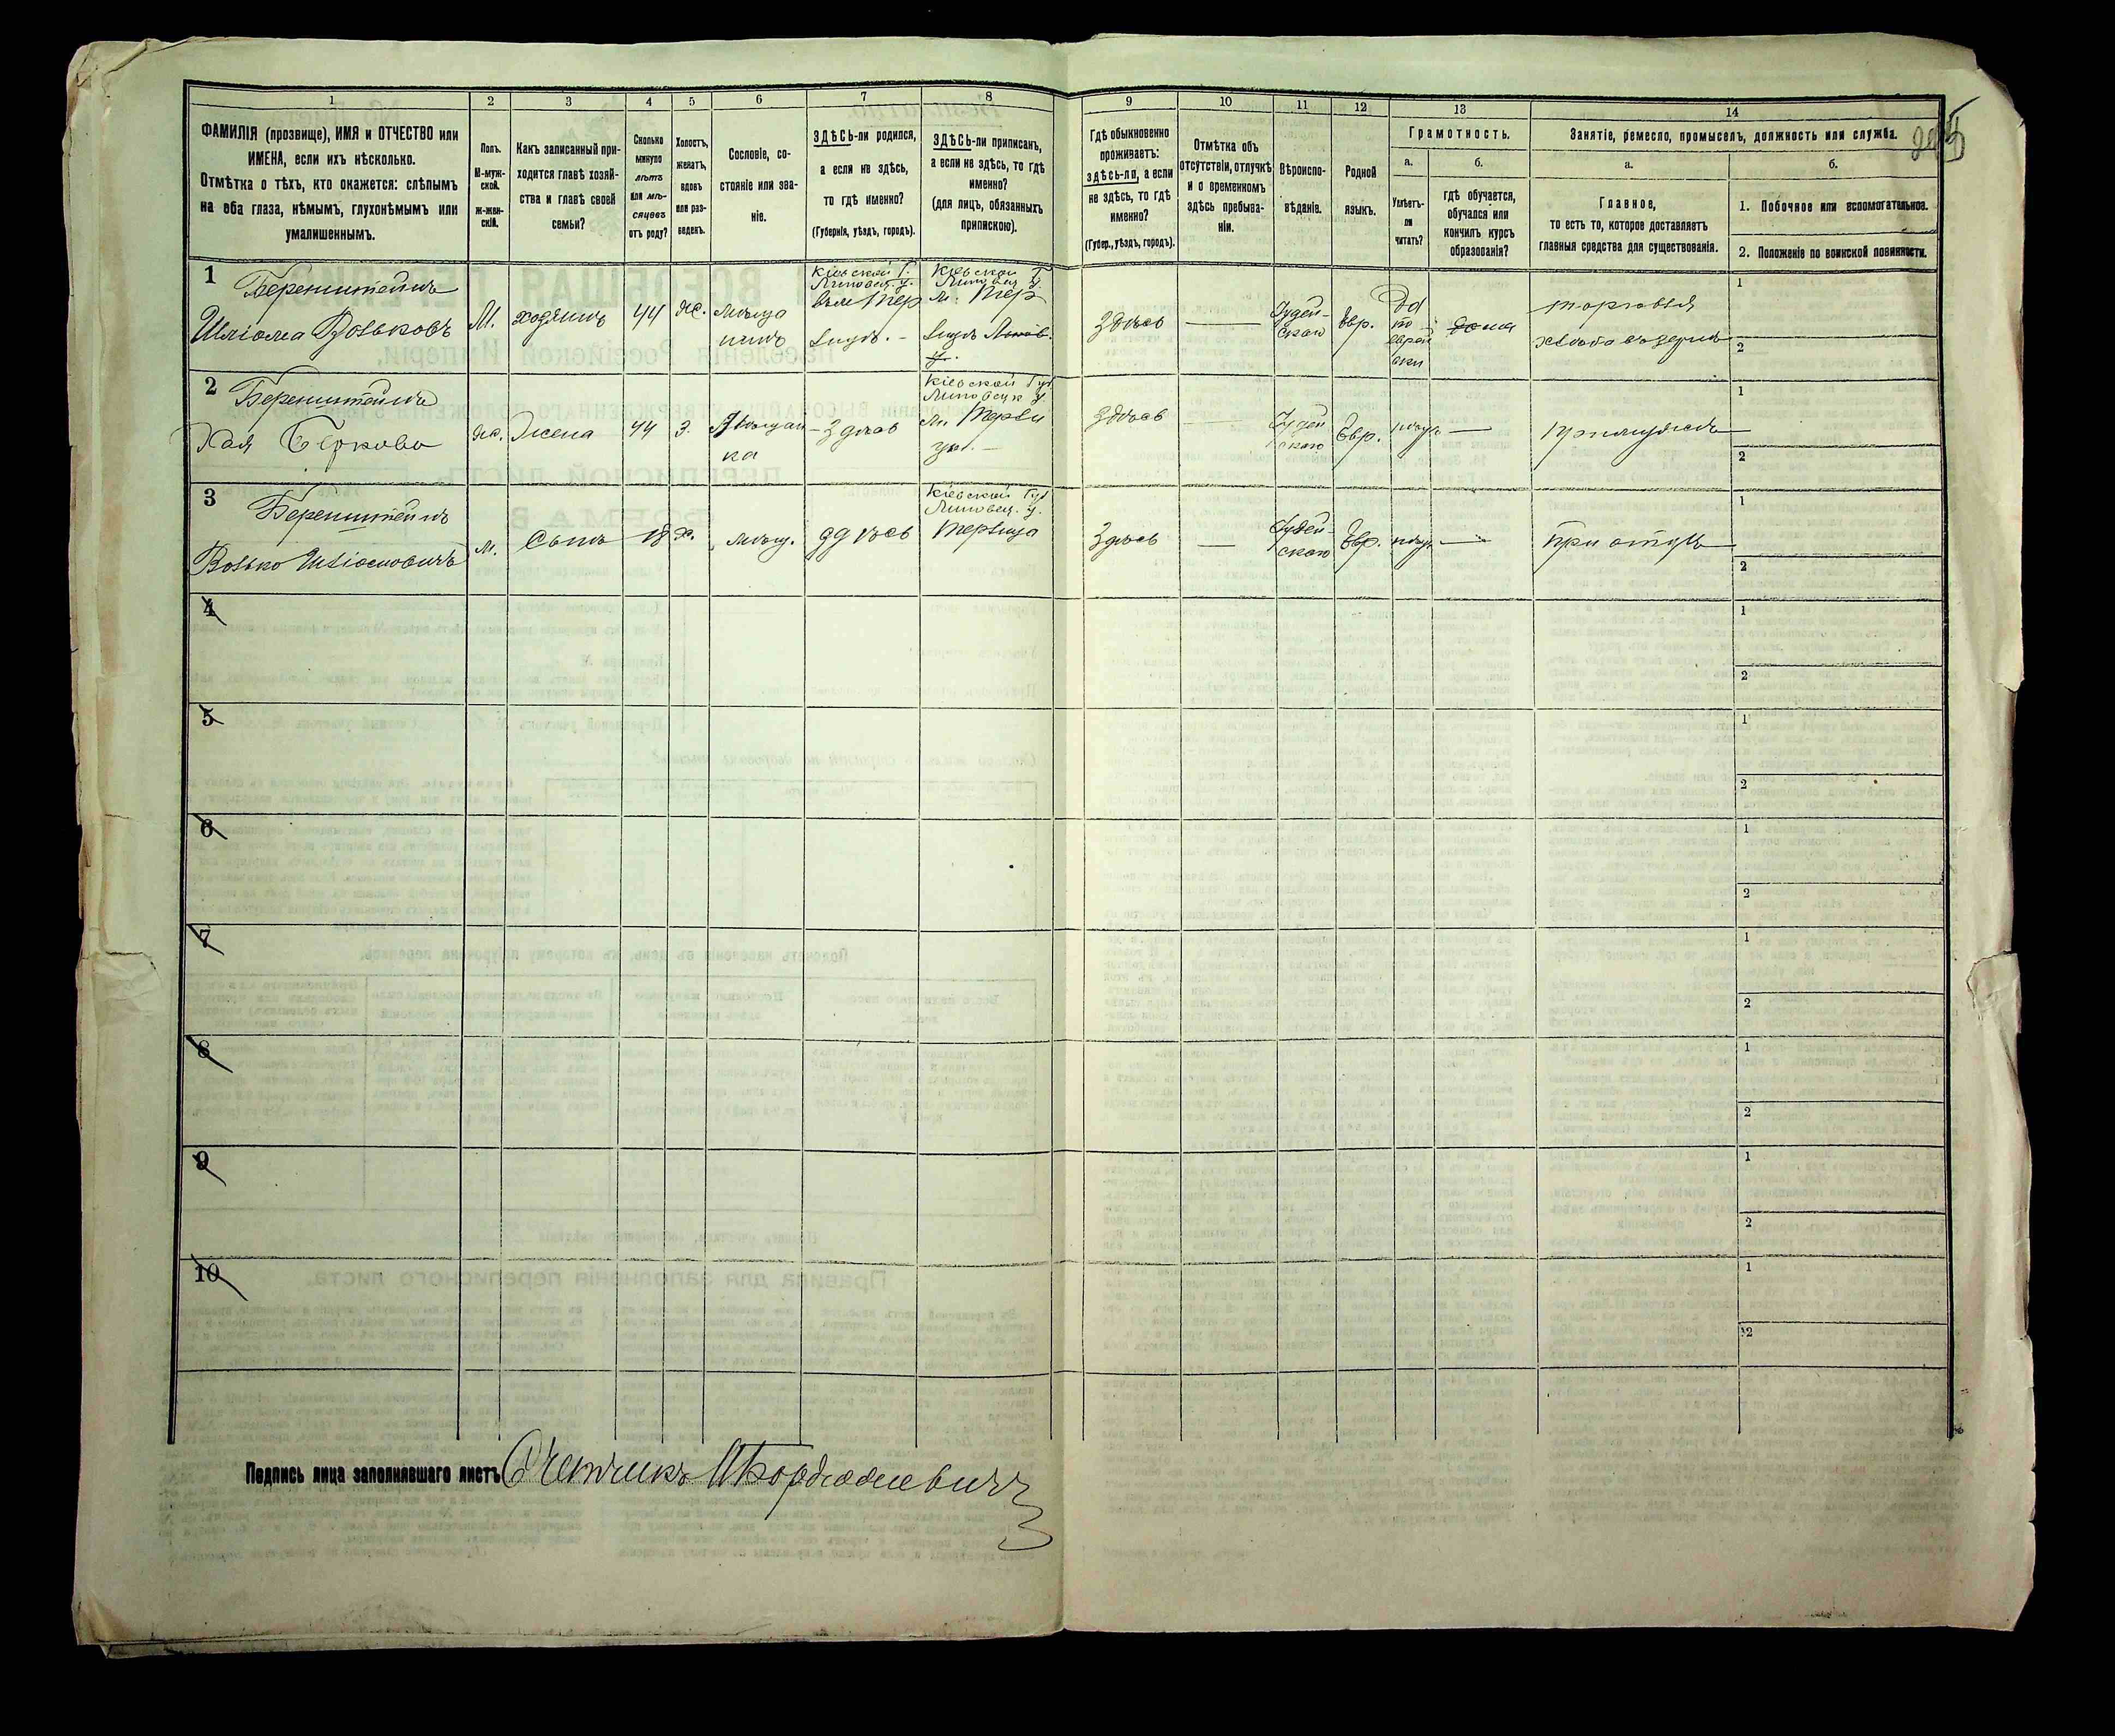 1
ФАМИЛІЯ (прозвище), ИМЯ и ОТЧЕСТВО или
ИМЕНА, если ихъ нѣсколько.
Отмѣтка о тѣхъ, кто окажется: слѣпымъ
на оба глаза, нѣмымъ, глухонѣмымъ или
умалишеннымъ.
2
Полъ.
М-муж-
ской.
ж-жен-
скій.
3
Какъ записанный при-
ходится главѣ хозяй-
ства и главѣ своей
семьи?
4
Сколько
минуло
лѣтъ
или мѣ-
сяцевъ
отъ роду?
5
Холостъ,
женатъ,
вдовъ
или раз-
веденъ.
6
Сословіе, со-
стояніе или зва-
ніе.
7
ЗДѢСЬ-ли родился,
а если не здѣсь,
то гдѣ именно?
(Губернія, уѣздъ, городъ).
8
ЗДѢСЬ-ли приписанъ,
а если не здѣсь, то гдѣ
именно?
(для лицъ, обязанныхъ
припискою).
9
Гдѣ обыкновенно
проживаетъ:
здѣсь-ли, а если
не здѣсь, то гдѣ
именно?
(Губер., уѣздъ, городъ).
10
Отмѣтка объ
отсутствіи, отлучкѣ
и о временномъ
здѣсь пребыва-
ніи.
11
Вѣроиспо-
вѣданіе.
12
Родной
языкъ.
13
Грамотность.
а.
Умѣетъ-
ли
читать?
б.
гдѣ обучается,
обучался или
кончилъ курсъ
образованія?
14
Занятіе, ремесло, промыселъ, должность или служба.
а.
Главное,
то есть то, которое доставляетъ
главныя средства для существованія.
б.
1. Побочное или вспомогательное.
2. Положеніе по воинской повинности.
1
Беренштейнъ
Шліома Вольковъ
М.
хозяинъ
44
ж.
мѣща
нинъ
Кіевской Г.
Липовец. у.
Кіевской Г.
Липовец. у.
Здѣсь
Іудей-
скаго
Евр.
Да
по
еврей
ски
дома
торговля
1
2
2
Беренштейнъ
Хая Беркова
ж.
Жена
44
З.
Мѣщан
ка
Здѣсь
Кіевской Губ
Липовецк у.
Здѣсь
Іудей
скаго
Евр.
При мужѣ
1
2
3
Беренштейнъ
Волько Шліомовичъ
м.
Сынъ
18
х.
мѣщ.
здѣсь
Кіевской Губ
Липовец. у.
Здѣсь
Іудей-
скаго
Евр.
При отцѣ
1
2
4
1
2
5
1
2
6
1
2
7
1
2
8
1
2
9
1
2
10
1
2
Подпись лица заполнявшаго листъ Счетчикъ